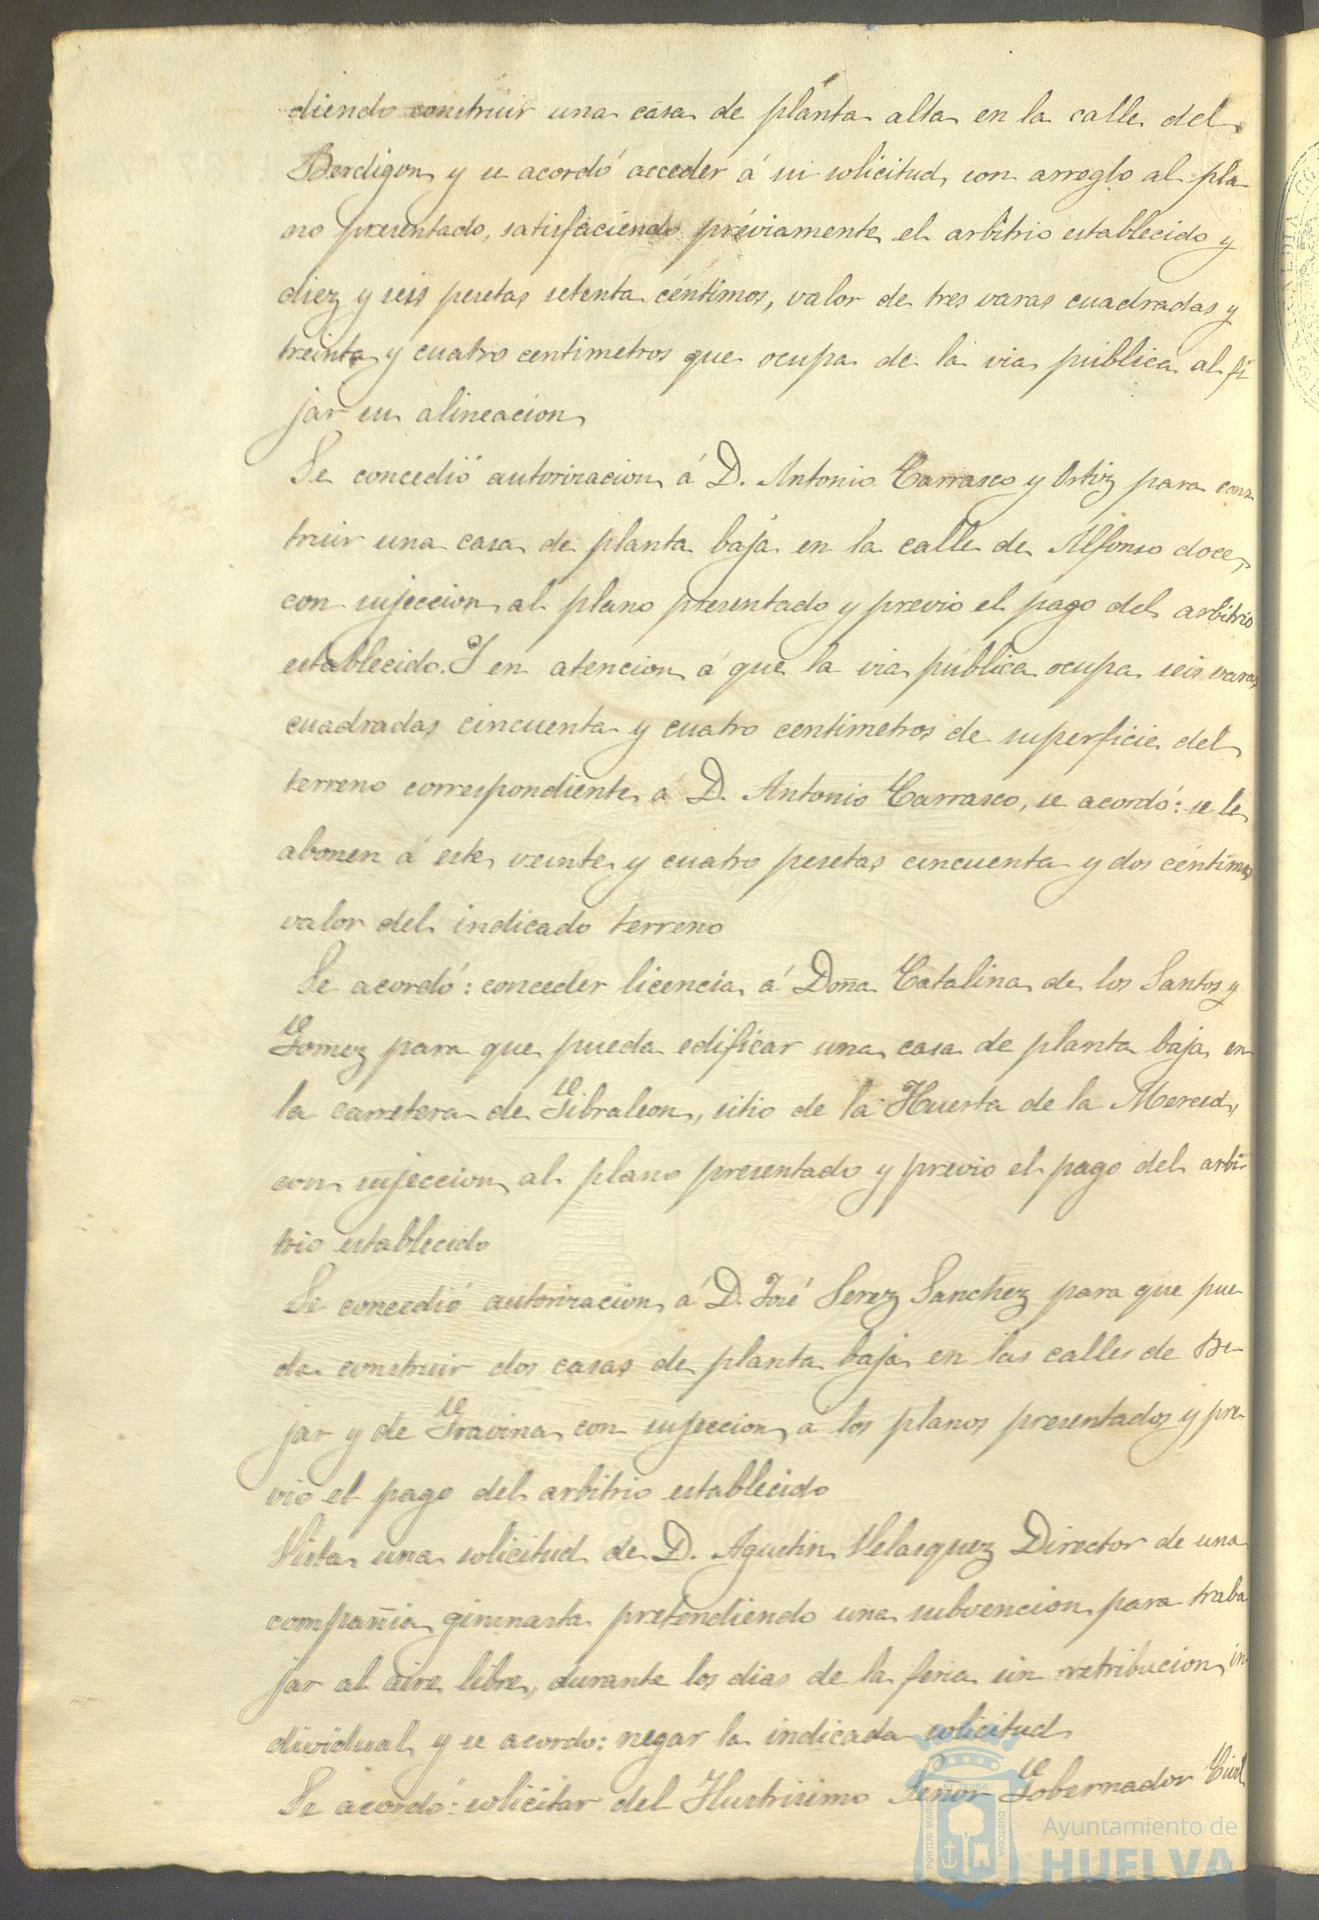 diendo construir una casa de planta alta en la calle del
Berdigon y se acordó acceder á su solicitud, con arreglo al pla
no presentado, satisfaciendo préviamente el arbitrio establecido y
diez y seis pesetas setenta céntimos, valor de tres varas cuadradas y
treinta y cuatro centimetros que ocupa de la via pública al fi
jar su alineacion
Se concedió autorizacion á D. Antonio Carrasco y Ortiz para cons
truir una casa de planta baja en la calle de Alfonso doce,
con sujeccion al plano presentado y previo el pago del arbitrio
establecido. Y en atencion á que la via pública ocupa seis varas
cuadradas cincuenta y cuatro centimetros de superficie del
terreno correspondiente á D. Antonio Carrasco, se acordó: se le
abonen á este veinte y cuatro pesetas cincuenta y dos céntimos
valor del indicado terreno
Se acordó: conceder licencia á Doña Catalina de los Santos y
Gomez para que pueda edificar una casa de planta baja en
la carretera de Gibraleon, sitio de la Huerta de la Merced,
con sujeccion al plano presentado y previo el pago del arbi-
trio establecido
Se concedió autorizacion á D. José Perez Sanchez para que pue-
da construir dos casas de planta baja en las calles de Be-
jar y de Gravina con sujeccion á los planos presentados y pre-
vio el pago del arbitrio establecido
Vista una solicitud de D. Agustin Velasquez Director de una
compañia gimnasta pretendiendo una subvencion para traba
jar al aire libre, durante los dias de la feria sin retribucion in
dividual, y se acordo: negar la indicada solicitud
Se acordó: solicitar del Ilustrisimo Señor Gobernador Civil
PORTUS MARIS ET TERRA CUSTODIA
Ayuntamiento de
HUELVA